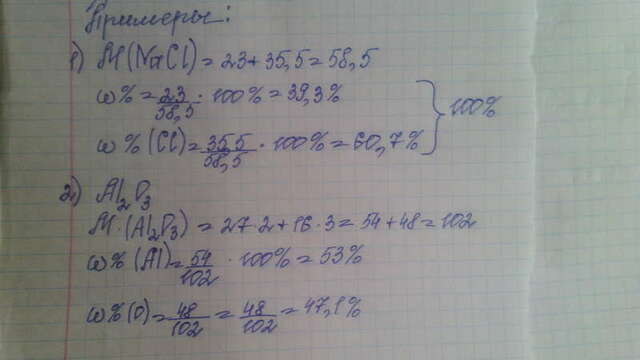 Примеры:
1) M(NaCl) = 23 + 35,5 = 58,5
ω% = 23/58,5 · 100% = 39,3%
100%
ω%(Cl) = 35,5/58,5 · 100% = 60,7%
2) Al₂O₃
M·(Al₂O₃) = 27·2 + 16·3 = 54 + 48 = 102
ω%(Al) = 54/102 · 100% = 53%
ω%(O) = 48/102 = 48/102 = 47,1%